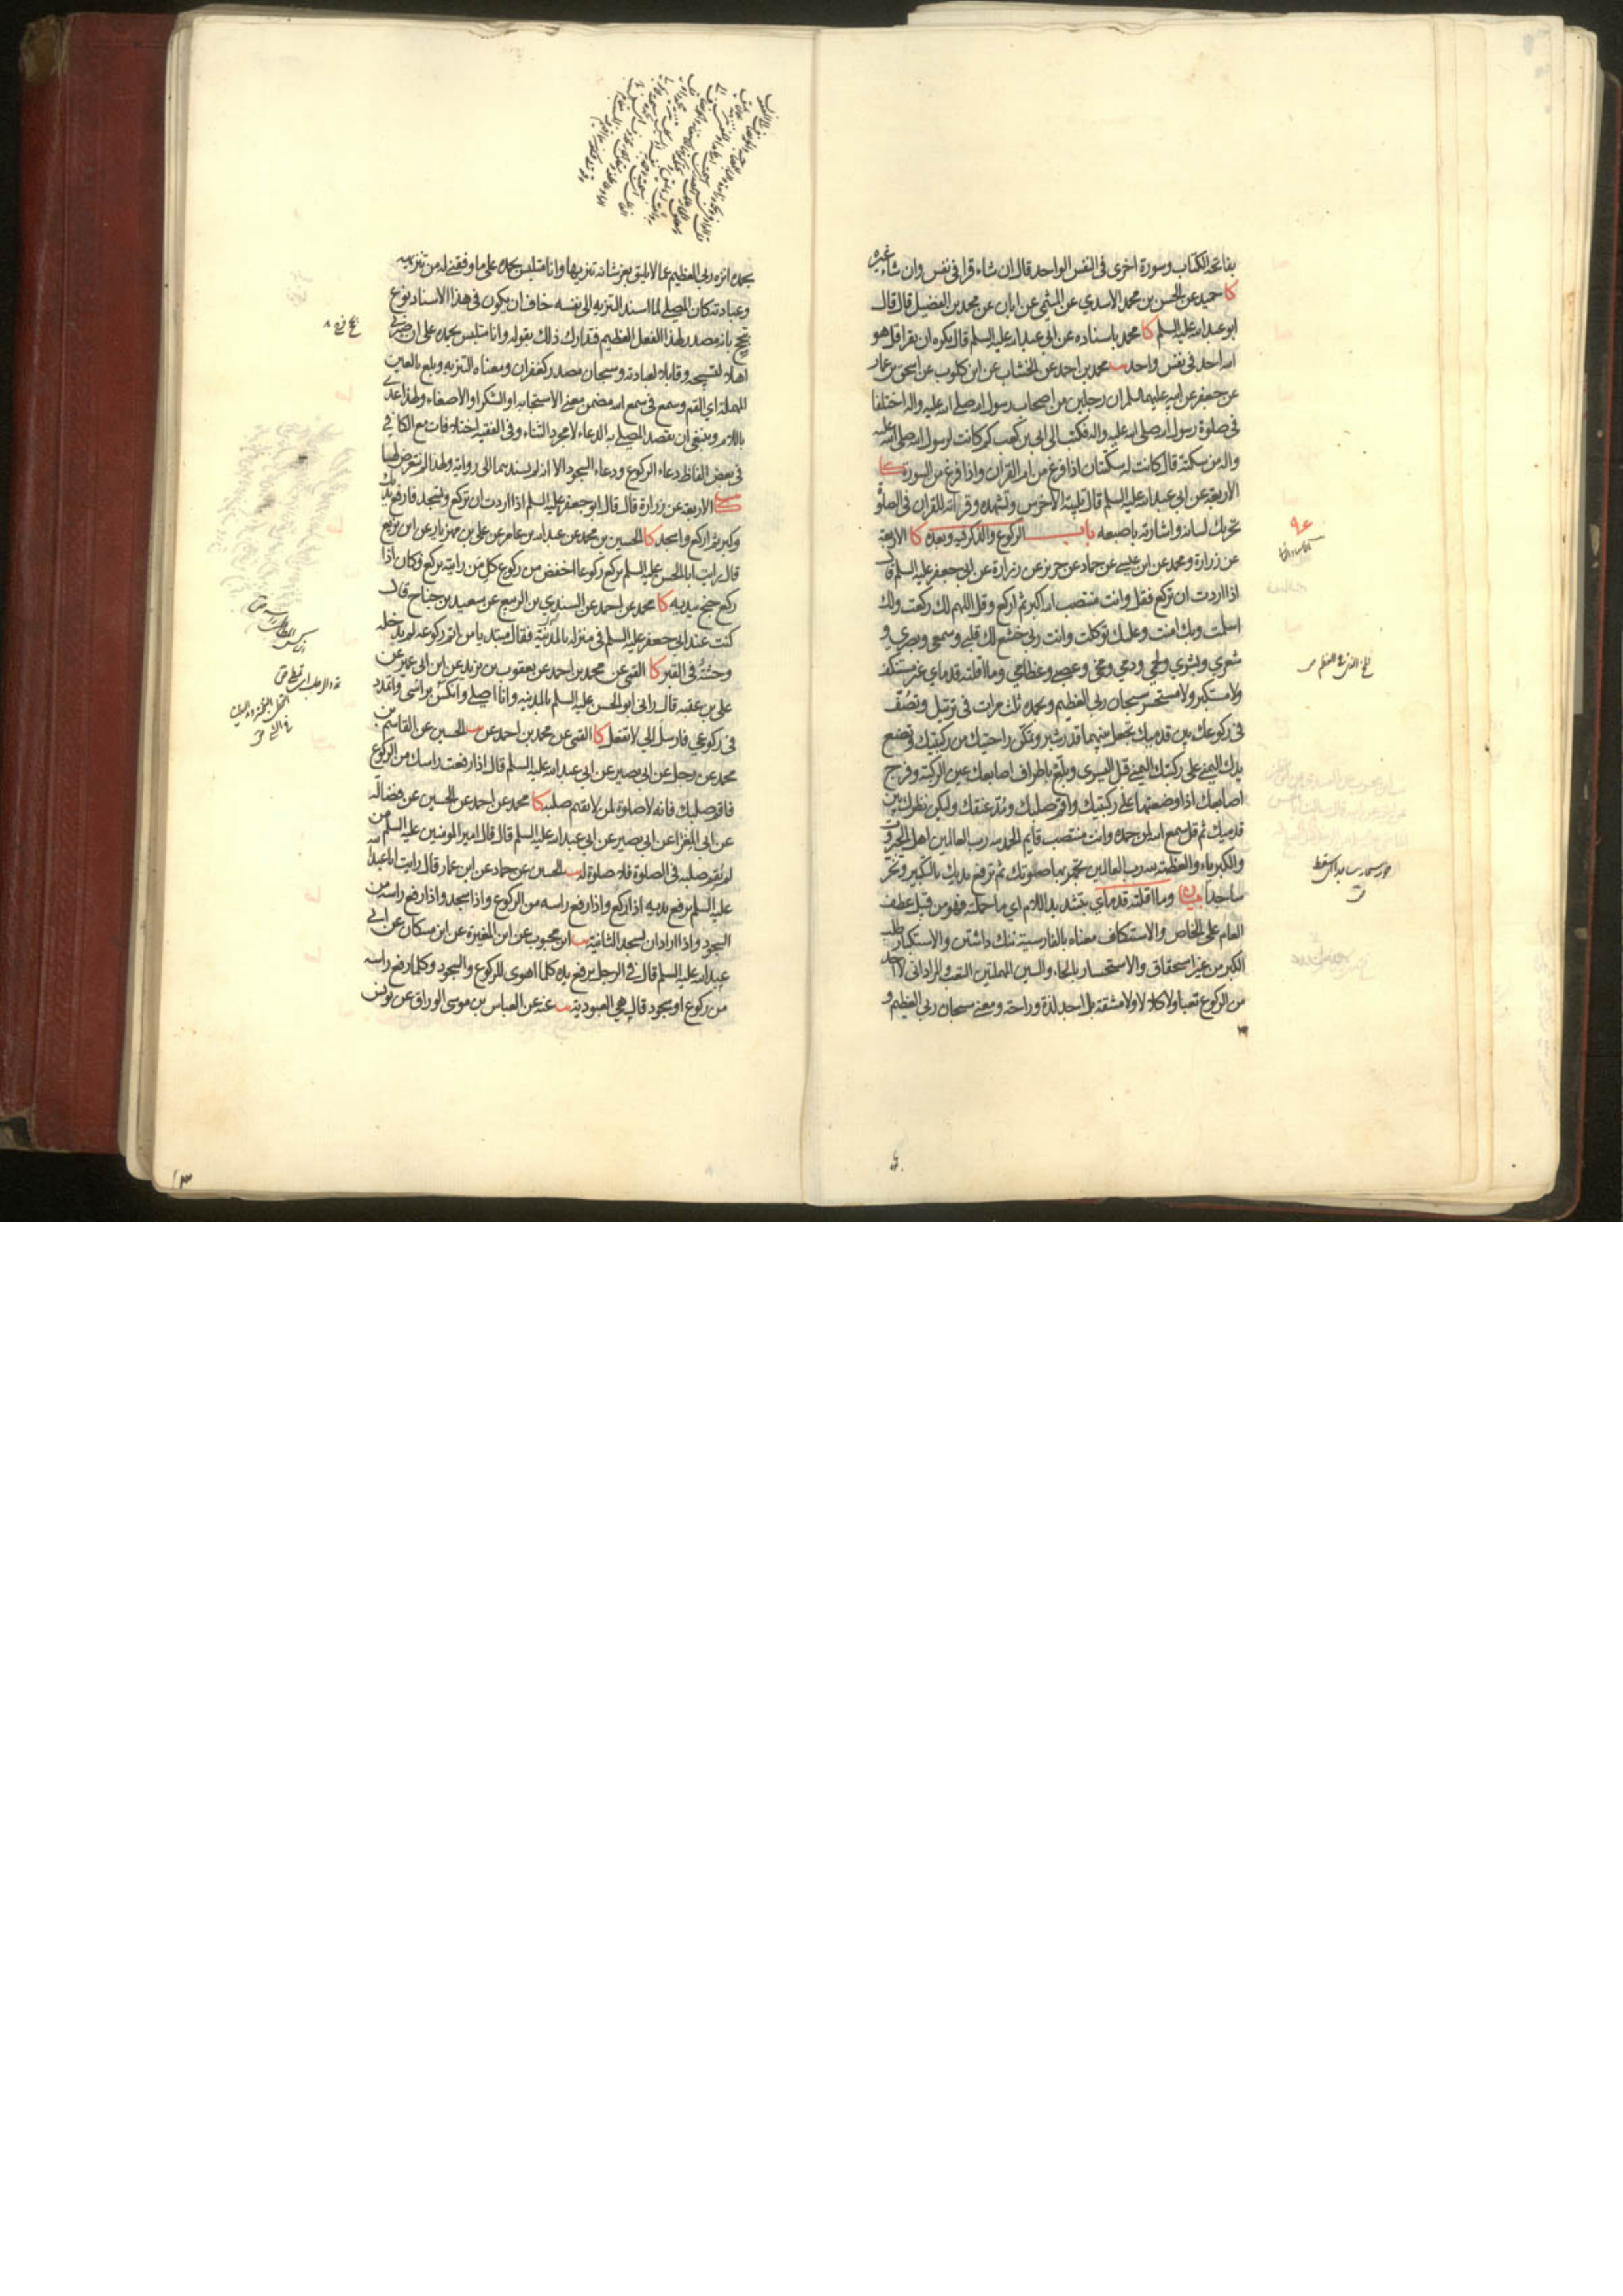 بفاتحة الكتاب وسورة اخرى فى النفس الواحد قال ان شاء قرا فى نفس وان شاء غيره
كا حميد عن الحسن بن محمد الاسدي عن الميثمي عن ابان عن محمد بن الفضيل قال قال
ابو عبد الله عليه السلم كا محمد باسناده عن ابي عبد الله عليه السلم قال يكره ان يقرا قل هو
الله احد فى نفس واحد يب محمد بن احمد عن الخشاب عن ابن كلوب عن اسحق بن عمار
عن جعفر عن ابيه عليهما السلم ان رجلين من اصحاب رسول الله صلى الله عليه واله اختلفا
فى صلوة رسول الله صلى الله عليه واله فكتب الى ابي بن كعب كم كانت لرسول الله صلى الله عليه
واله من سكتة قال كانت له سكتتان اذا فرغ من ام القران واذا فرغ من السورة كا
الاربعة عن ابي عبد الله عليه السلم قال تلبية الاخرس وتشهده وقراءته للقران فى الصلوة
تحريك لسانه واشارته باصبعه باب الركوع والذكر فيه وبعده كا الاربعة
عن زرارة ومحمد عن ابن عيسى عن حماد عن حريز عن زرارة عن ابي جعفر عليه السلم قال
اذا اردت ان تركع فقل وانت منتصب الله اكبر ثم اركع وقل اللهم لك ركعت ولك
اسلمت وبك امنت وعليك توكلت وانت ربي خشع لك قلبي وسمعي وبصري و
شعري وبشري ولحمي ودمي ومخي وعصبي وعظامي وما اقلته قدماي غير مستنكف
ولا مستكبر ولا مستحسر سبحان ربي العظيم وبحمده ثلث مرات فى ترتيل وتصف
فى ركوعك بين قدميك تجعل بينهما قدر شبر وتمكن راحتيك من ركبتيك وتضع
يدك اليمنى على ركبتك اليمنى قبل اليسرى وبلع باطراف اصابعك عين الركبة وفرج
اصابعك اذا وضعتها على ركبتيك واقم صلبك ومد عنقك وليكن نظرك بين
قدميك ثم قل سمع الله لمن حمده وانت منتصب قايم الحمد لله رب العالمين اهل الجبروت
والكبرياء والعظمة لله رب العالمين تجهر بها صلوتك ثم ترفع يديك بالتكبير وتخر
ساجدا بيان وما اقلته قدماي بتشديد اللام اي ما حملته فهو من قبل عطف
العام على الخاص والاستنكاف معناه بالفارسية ننك داشتن والاستكبار طلب
الكبر من غير استحقاق والاستحسار بالحاء والسين المهملتين التعب والمراد انى لا اجد
من الركوع تعبا ولا كلالا ولا مشقة بل اجد لذة وراحة ومعنى سبحان ربي العظيم و
بحمده انزه ربي العظيم عما لا يليق بعز شانه تنزيها وانا متلبس بحمده على ما وفقني له من تنزيهه
وعبادته كان المصلي لما اسند التنزيه الى نفسه خاف ان يكون فى هذا الاسناد نوع
تبجح بانه مصدر لهذا الفعل العظيم فتدارك ذلك بقوله وانا متلبس بحمده على ان صيرني
اهلا لتسبيحه وقابلا لعبادته وسبحان مصدر كغفران ومعناه التنزيه وبلع بالعين
المهملة اي القم وسمع فى سمع الله مضمن معنى الاستجابة او الشكر او الاصغاء ولهذا عدى
باللام وينبغي ان يقصد المصلي به الدعاء لا مجرد الثناء وفى الفقيه اختلافات مع الكافي
فى بعض الفاظ دعاء الركوع ودعاء السجود الا انه لم يسندهما الى رواية ولهذا لم نتعرض لها
كا الاربعة عن زرارة قال قال ابو جعفر عليه السلم اذا اردت ان تركع وتسجد فارفع يديك
وكبر ثم اركع واسجد كا الحسين بن محمد عن عبد الله بن عامر عن علي بن مهزيار عن ابن بزيع
قال رايت ابا الحسن عليه السلم يركع ركوعا اخفض من ركوع كل من رايته يركع وكان اذا
ركع جنح بيديه كا محمد عن احمد عن السندي بن الربيع عن سعيد بن جناح قال
كنت عند ابي جعفر عليه السلم فى منزله بالمدينة فقال مبتديا من اتم ركوعه لم يدخله
وحشة فى القبر كا القمي عن محمد بن احمد عن يعقوب بن يزيد عن ابن ابي عمير عن
علي بن عقبة قال راني ابو الحسن عليه السلم بالمدينة وانا اصلي وانكس براسي واتمدد
فى ركوعي فارسل الي لا تفعل كا القمي عن محمد بن احمد عن يب الحسين عن القاسم بن
محمد عن رجل عن ابي بصير عن ابي عبد الله عليه السلم قال اذا رفعت راسك من الركوع
فاقم صلبك فانه لا صلوة لمن لا يقيم صلبه كا محمد عن احمد عن الحسين عن فضالة
عن ابي المغرا عن ابي بصير عن ابي عبد الله عليه السلم قال قال امير المومنين عليه السلم من
لم يقم صلبه فى الصلوة فلا صلوة له يب الحسين عن حماد عن ابن عمار قال رايت ابا عبد الله
عليه السلم يرفع يديه اذا ركع واذا رفع راسه من الركوع واذا سجد واذا رفع راسه من
السجود واذا اراد ان يسجد الثانية يب ابن محبوب عن ابن المغيرة عن ابن مسكان عن ابي
عبد الله عليه السلم قال فى الرجل يرفع يده كلما اهوى للركوع والسجود وكلما رفع راسه
من ركوع او سجود قال هي العبودية يب عنه عن العباس بن موسى الوراق عن يونس